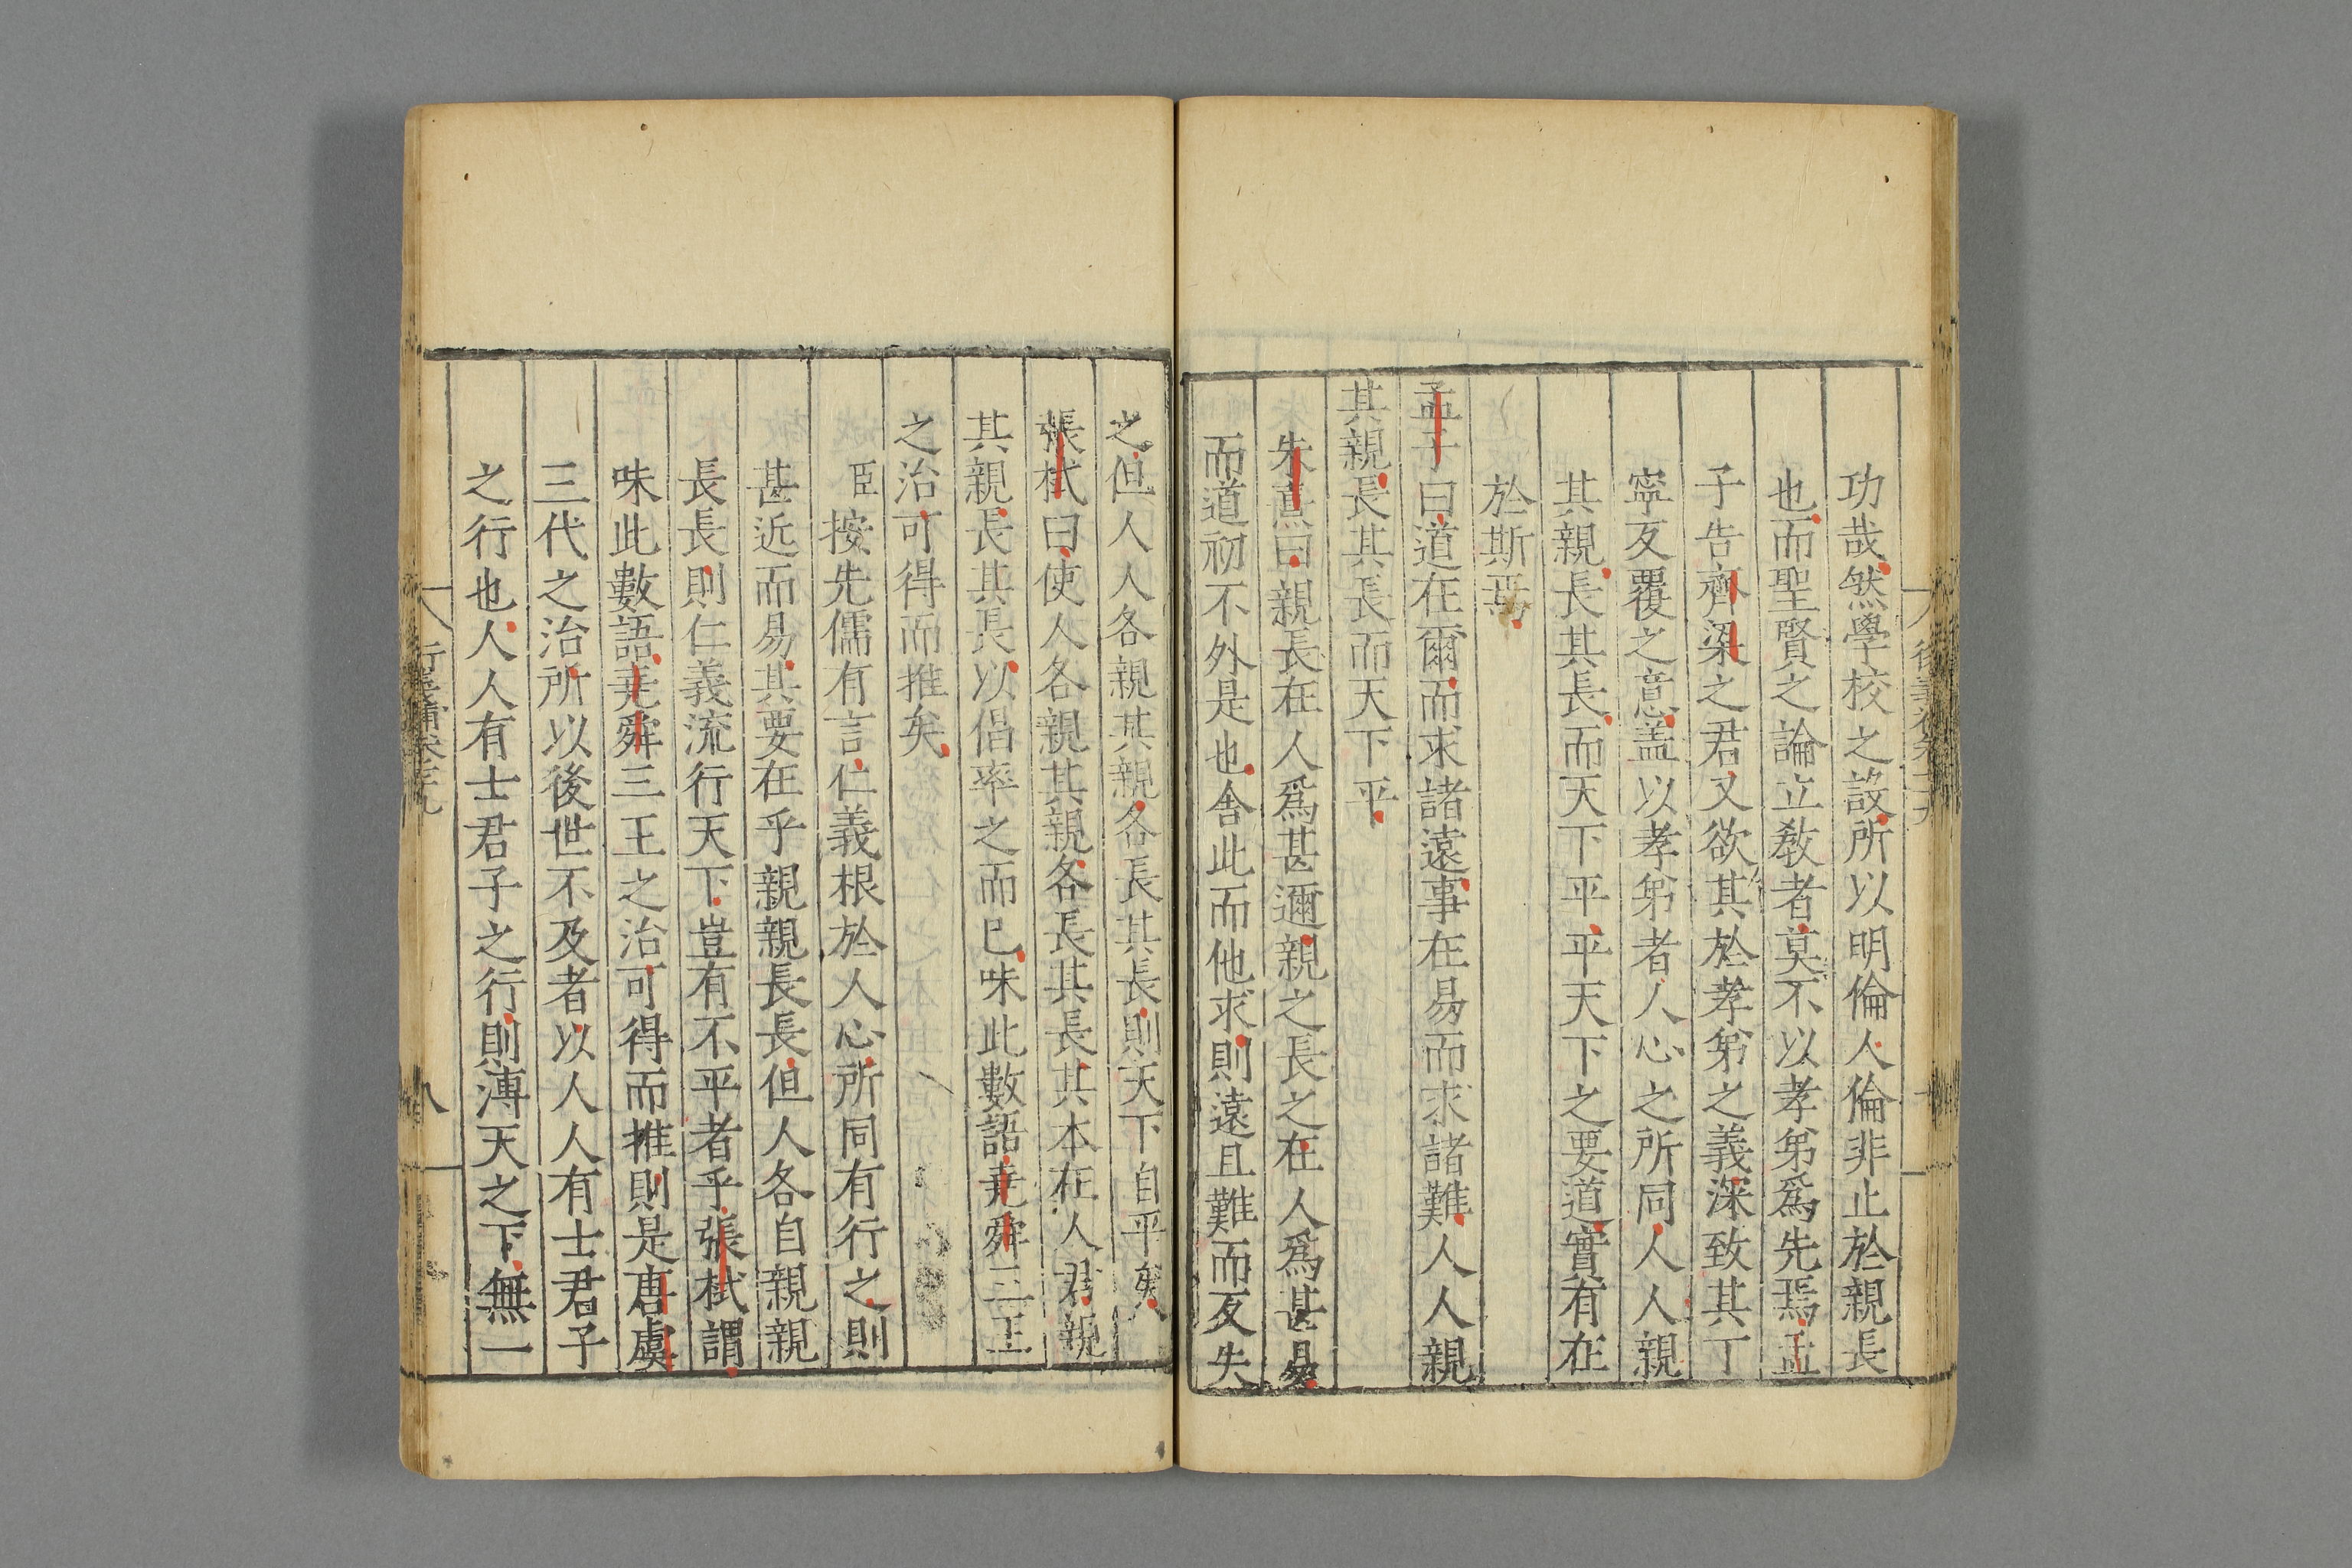 功哉然學校之設所以明倫人倫非止於親長
也而聖賢之論立敎者莫不以孝弟爲先焉孟
子告齊梁之君又欲其於孝弟之義深致其丁
寧反覆之意盖以孝弟者人心之所同人人親
其親長其長而天下平平天下之要道實有在
於斯焉
孟子曰道在爾而求諸遠事在易而求諸難人人親
其親長其長而天下平
朱熹曰親長在人爲甚邇親之長之在人爲甚易
而道初不外是也舍此而他求則遠且難而反失
之但人人各親其親各長其長則天下自平矣
張栻曰使人各親其親各長其長其本在人君親
其親長其長以倡率之而已味此數語堯舜三王
之治可得而推矣
臣按先儒有言仁義根於人心所同有行之則
甚近而易其要在乎親親長長但人各自親親
長長則仁義流行天下豈有不平者乎張栻謂
味此數語堯舜三王之治可得而推則是唐虞
三代之治所以後世不及者以人人有士君子
之行也人人有士君子之行則溥天之下無一
八